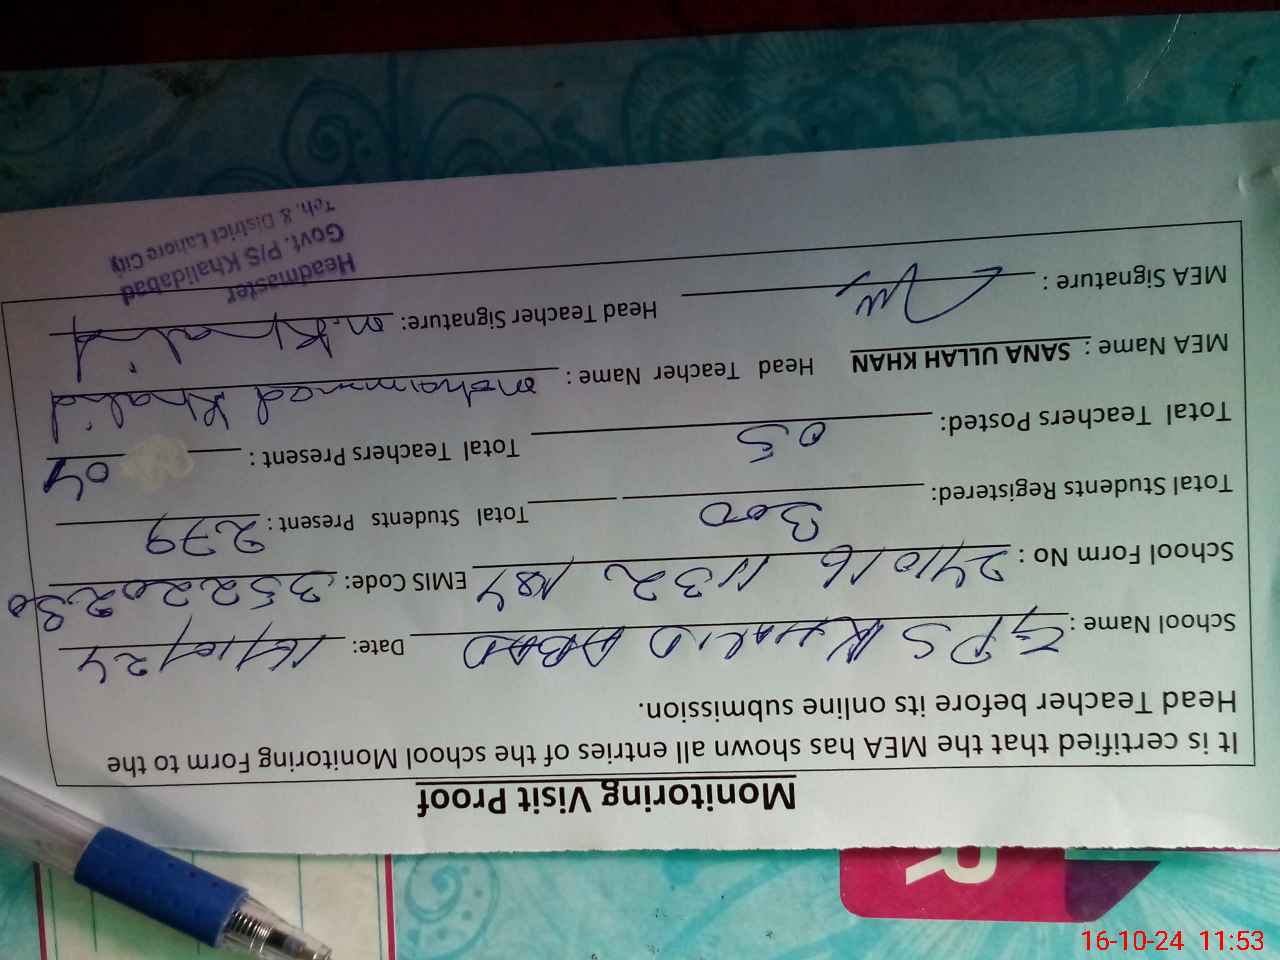 Monitoring Visit Proof
It is certified that the MEA has shown all entries of the school Monitoring Form to the
Head Teacher before its online submission.
School Name : GPS KHALID ABAD Date: 16/10/24
School Form No : 241016 1132 184 EMIS Code: 35220230
Total Students Registered: 300 Total Students Present : 279
Total Teachers Posted: 05 Total Teachers Present : 04
MEA Name : SANA ULLAH KHAN Head Teacher Name : Mohammad Khalid
MEA Signature : Head Teacher Signature: M.Khalid
Headmaster
Govt. P/S Khalidabad
Teh. & District Lahore City
R
16-10-24 11:53